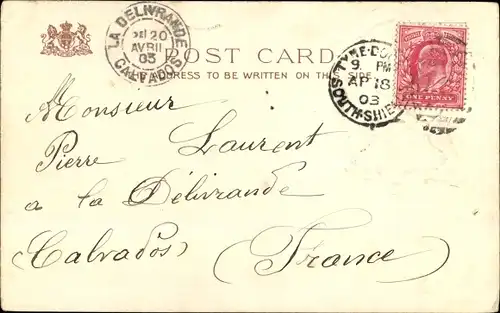 LA DELIVRANDE
20
AVRIL
03
CALVADOS
POST CARD
ADDRESS TO BE WRITTEN ON THIS SIDE
TYNE-DOCK
9. PM
AP 18
03
SOUTH-SHIE
ONE PENNY
Monsieur
Pierre Laurent
a la Délivrande
(Calvados) (France)